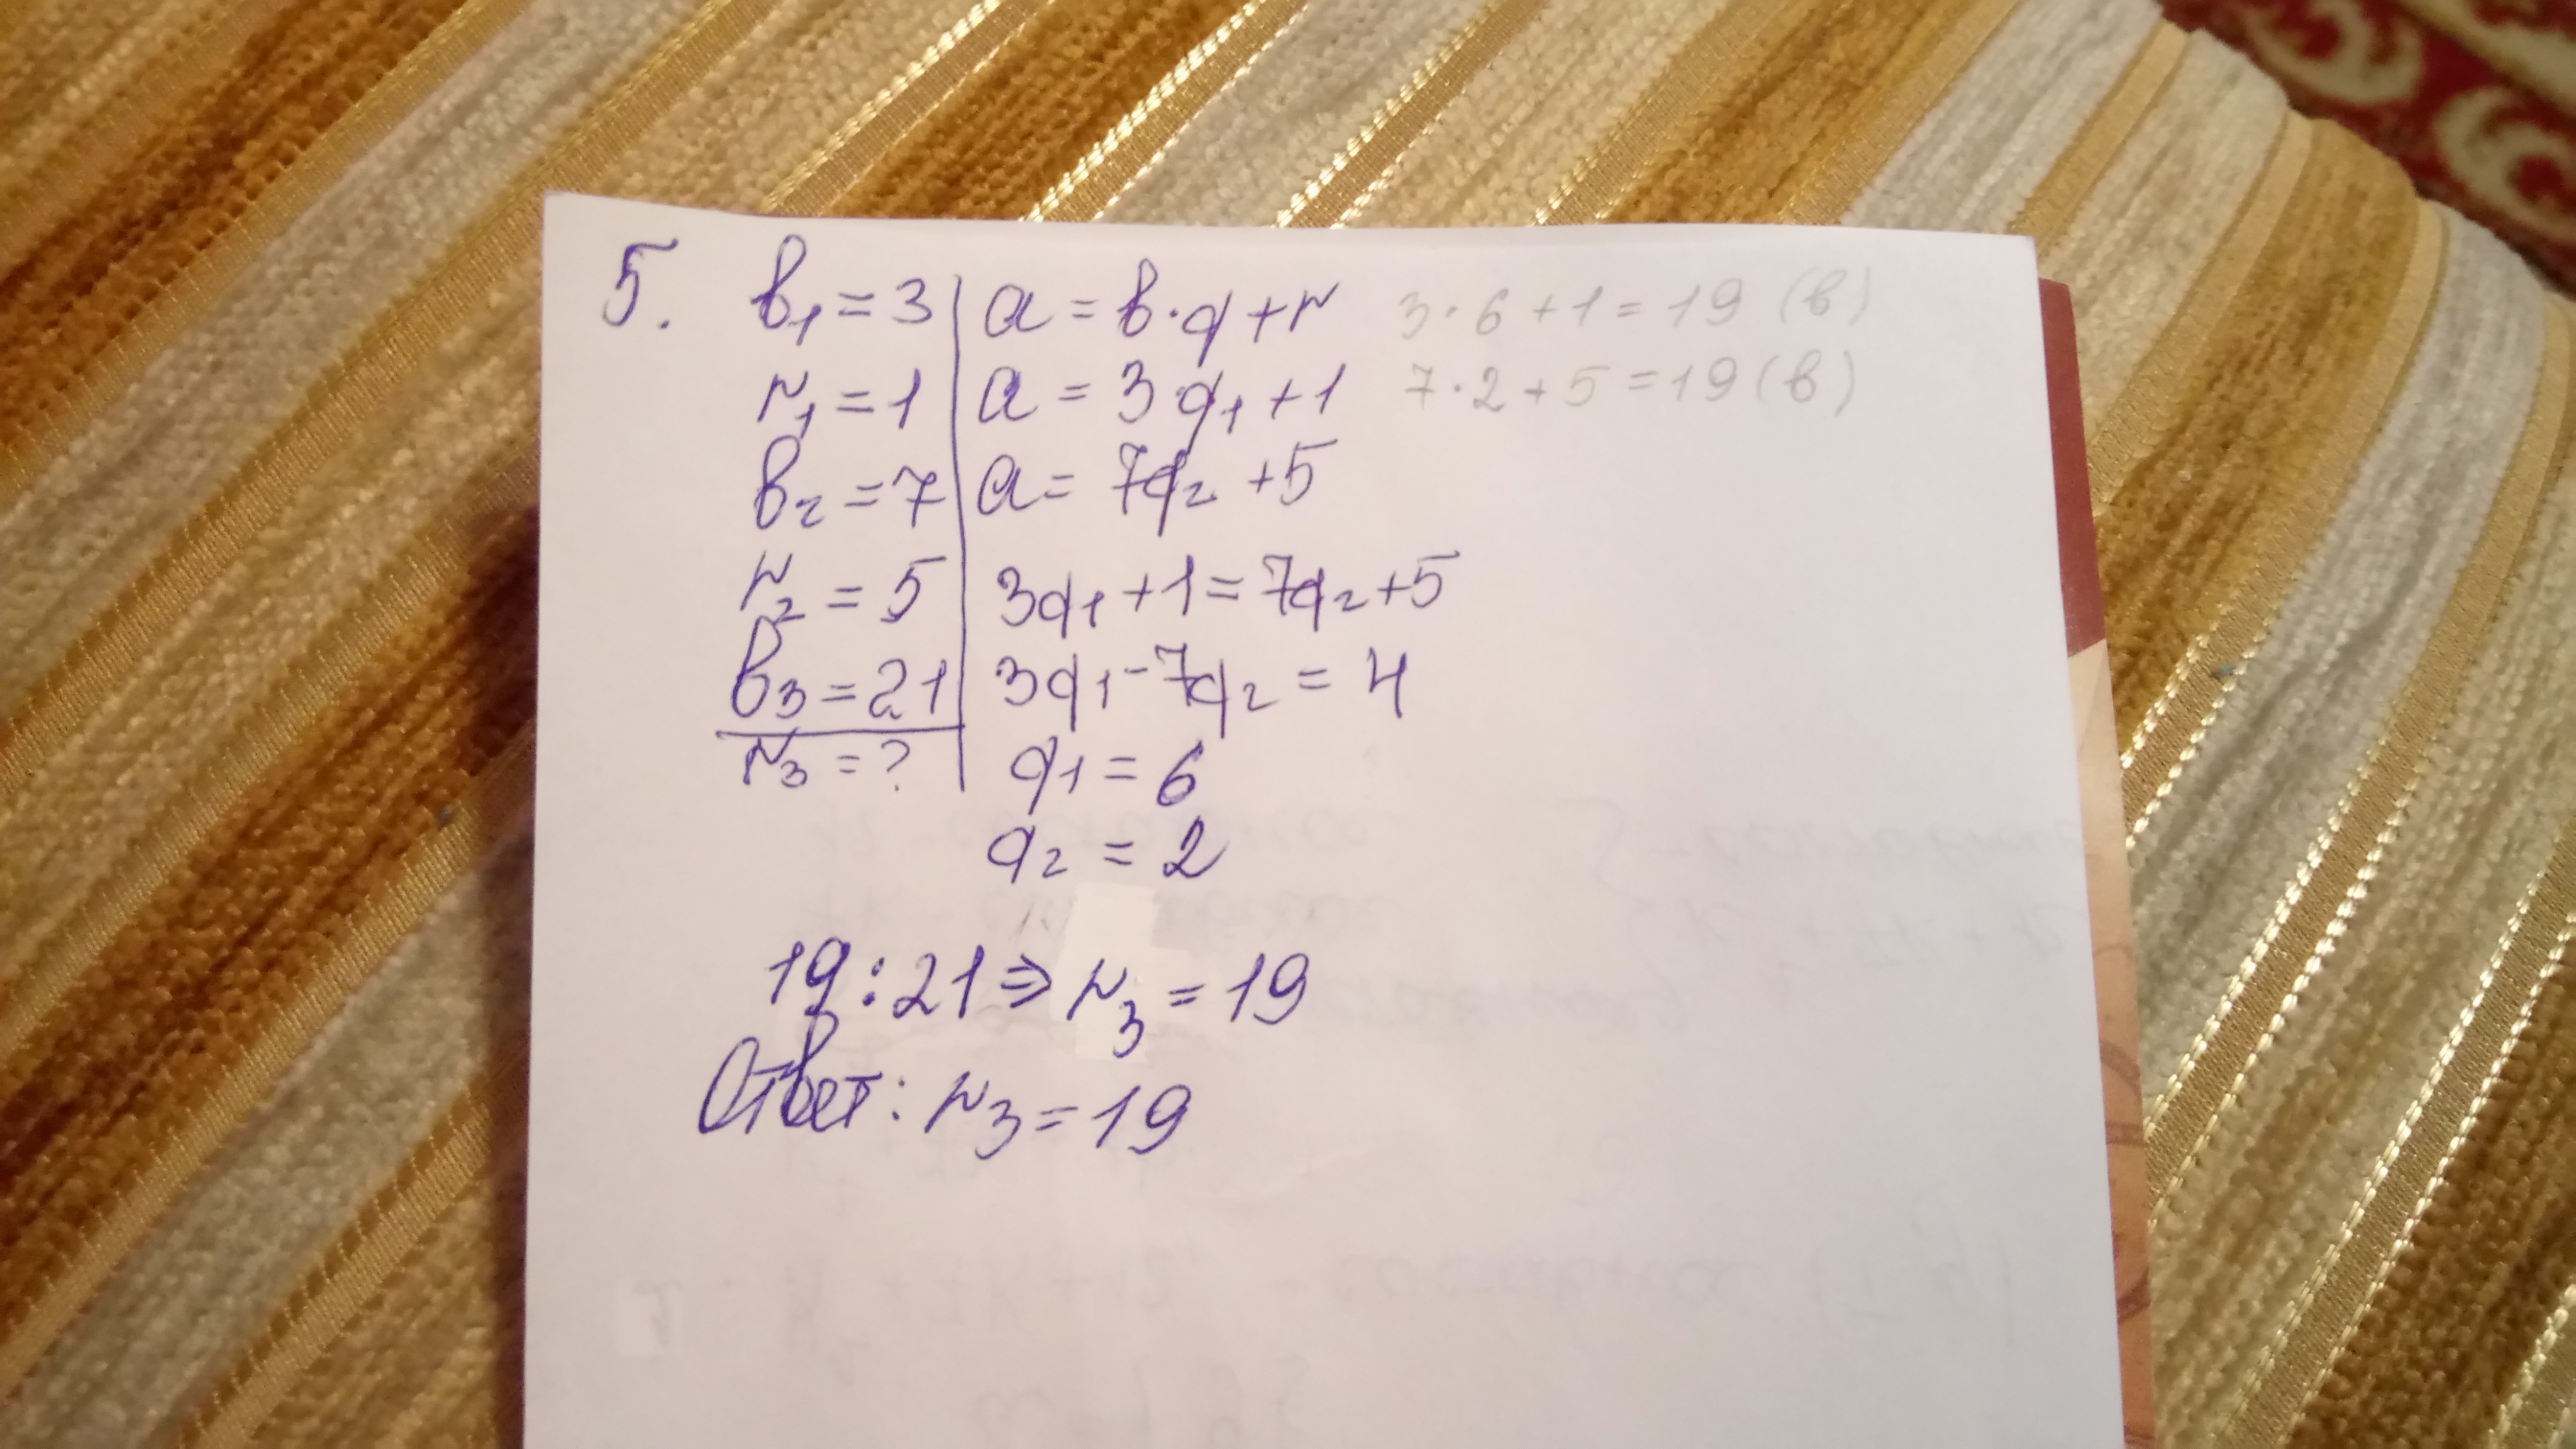 5. b₁ = 3 | a = b·q + r 3·6 + 1 = 19 (в)
r₁ = 1 | a = 3q₁ + 1 7·2 + 5 = 19 (в)
b₂ = 7 | a = 7q₂ + 5
r₂ = 5 | 3q₁ + 1 = 7q₂ + 5
b₃ = 21 | 3q₁ - 7q₂ = 4
r₃ = ? | q₁ = 6
q₂ = 2
19 : 21 ⇒ r₃ = 19
Ответ: r₃ = 19